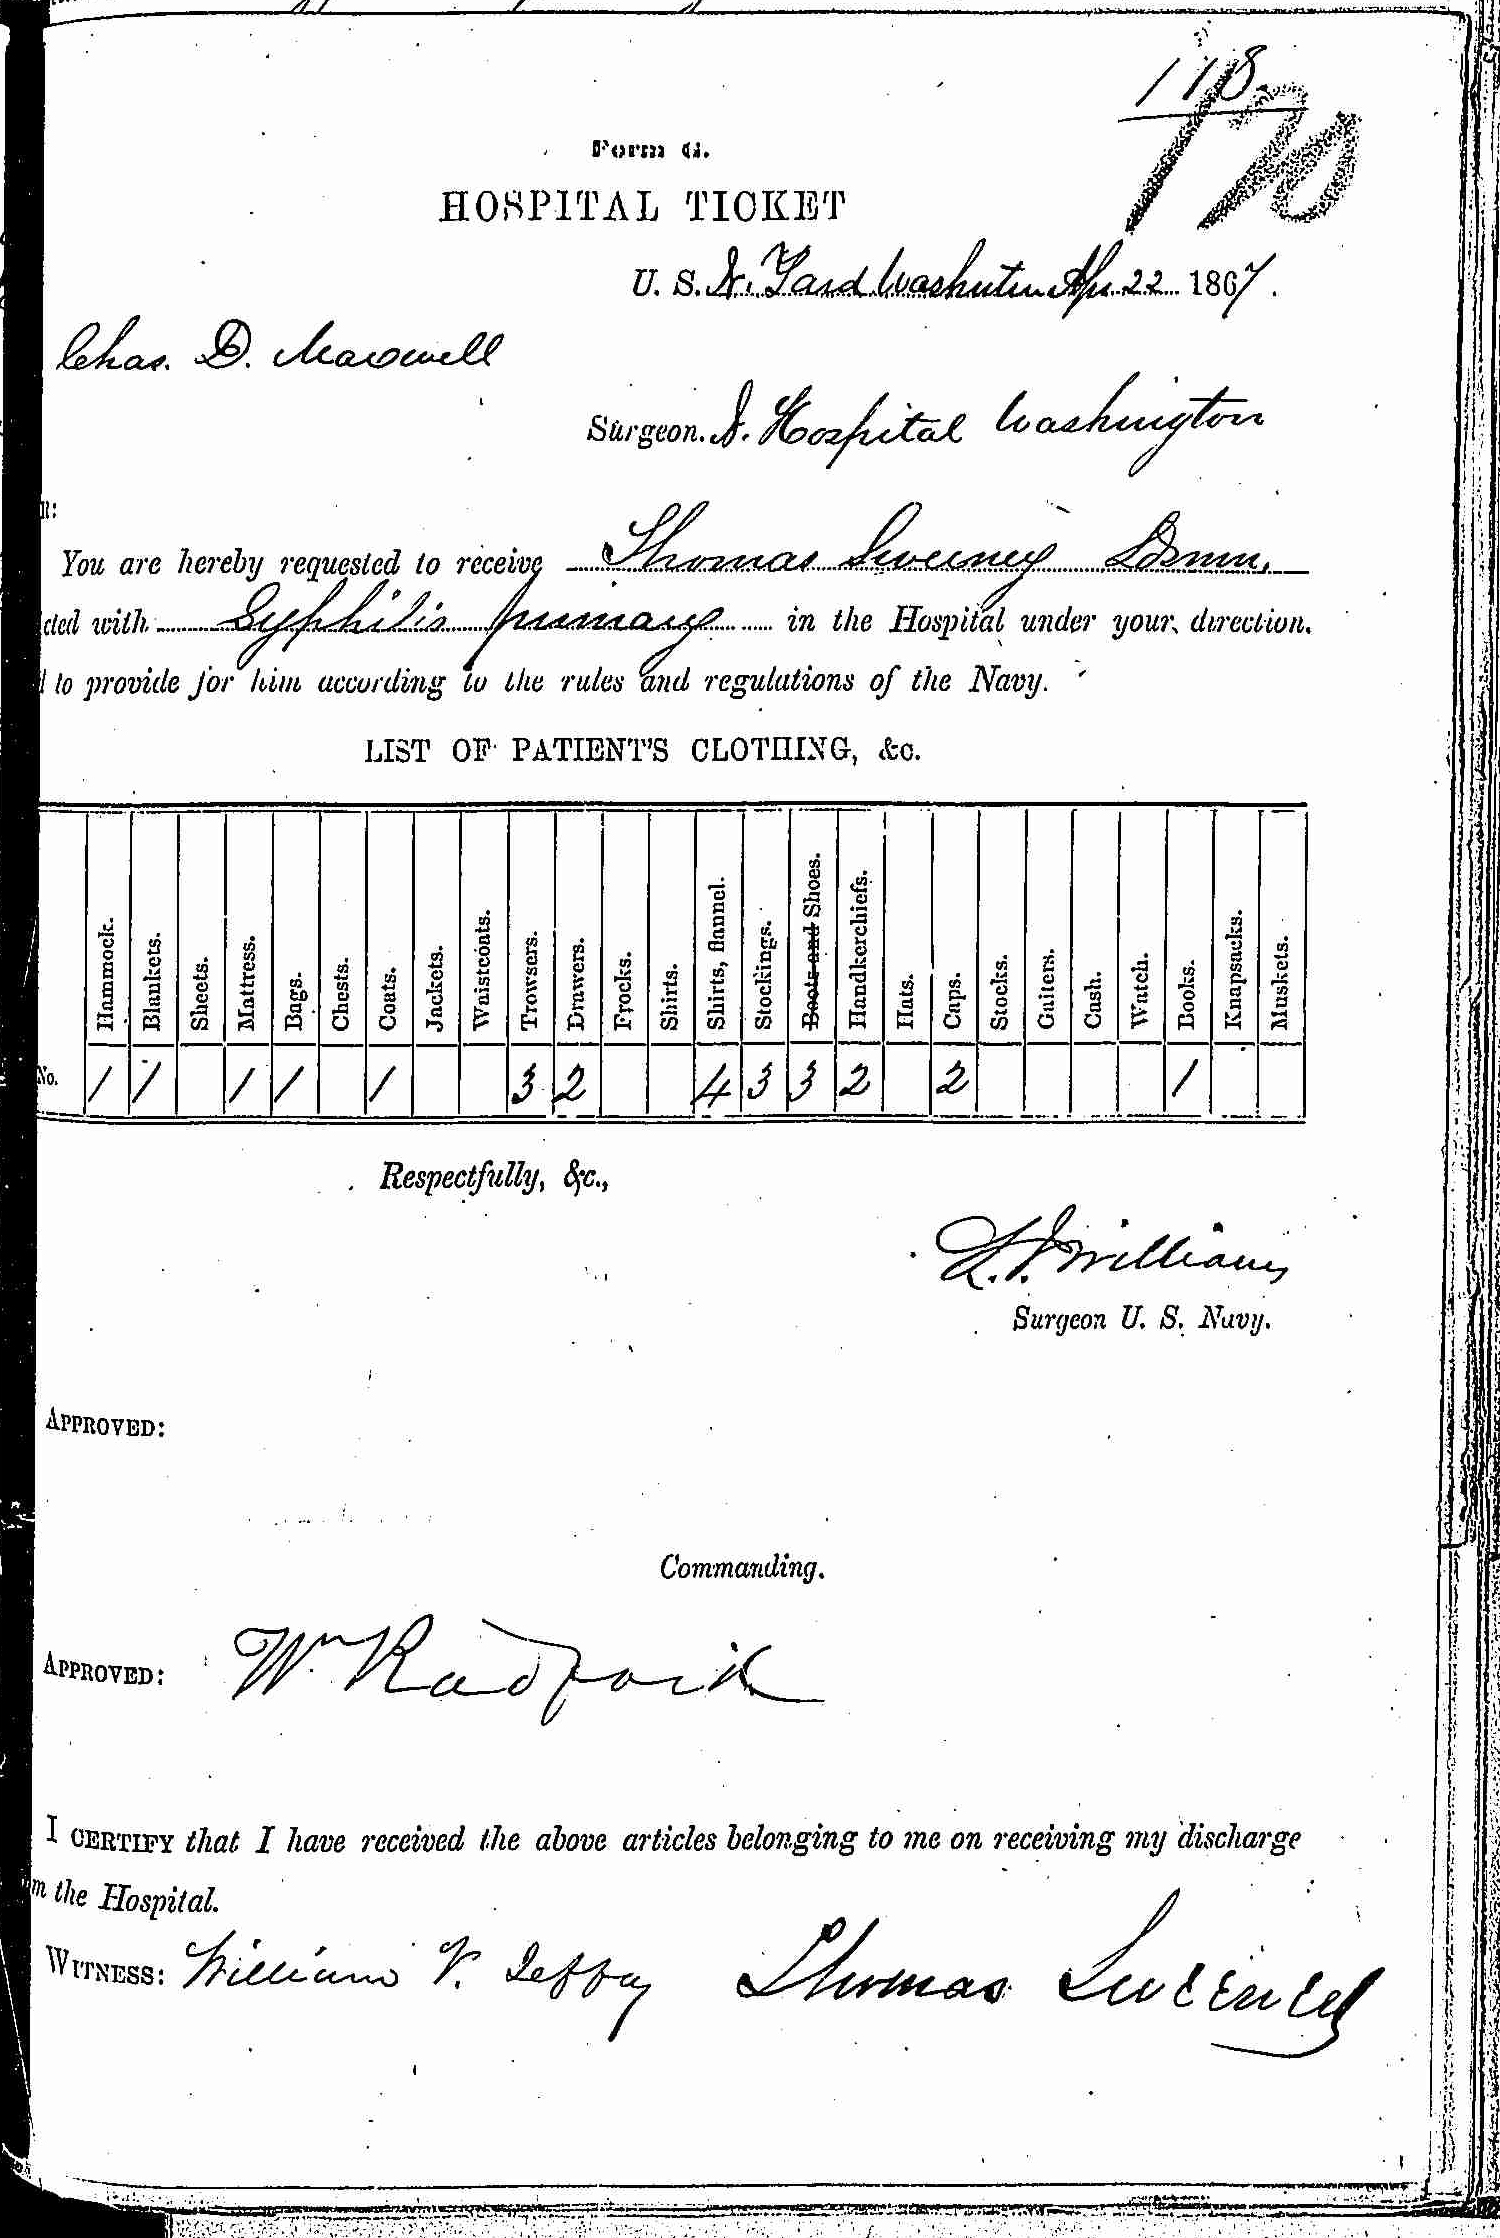 118
170
Form G.
HOSPITAL TICKET
U. S. N. Yard Washinton Apr 22 1867.
Chas. D. Maxwell
Surgeon. N. Hospital Washington
R:
You are hereby requested to receive Thomas Sweeney Ldsmn.
cted with Syphilis primary in the Hospital under your direction.
d to provide for him according to the rules and regulations of the Navy.
LIST OF PATIENT'S CLOTHING, &c.
Hammock. Blankets. Sheets. Mattress. Bags. Chests. Coats. Jackets. Waistcoats. Trowsers. Drawers. Frocks. Shirts. Shirts, flannel. Stockings. Boots and Shoes. Handkerchiefs. Hats. Caps. Stocks. Gaiters. Cash. Watch. Books. Knapsacks. Muskets.
No. 1 1 1 1 1 3 2 4 3 3 2 2 1
Respectfully, &c.,
Williams
Surgeon U. S. Navy.
APPROVED:
Commanding.
APPROVED: Wm Radford
I CERTIFY that I have received the above articles belonging to me on receiving my discharge
m the Hospital.
WITNESS: William V. Thomas Sweeney